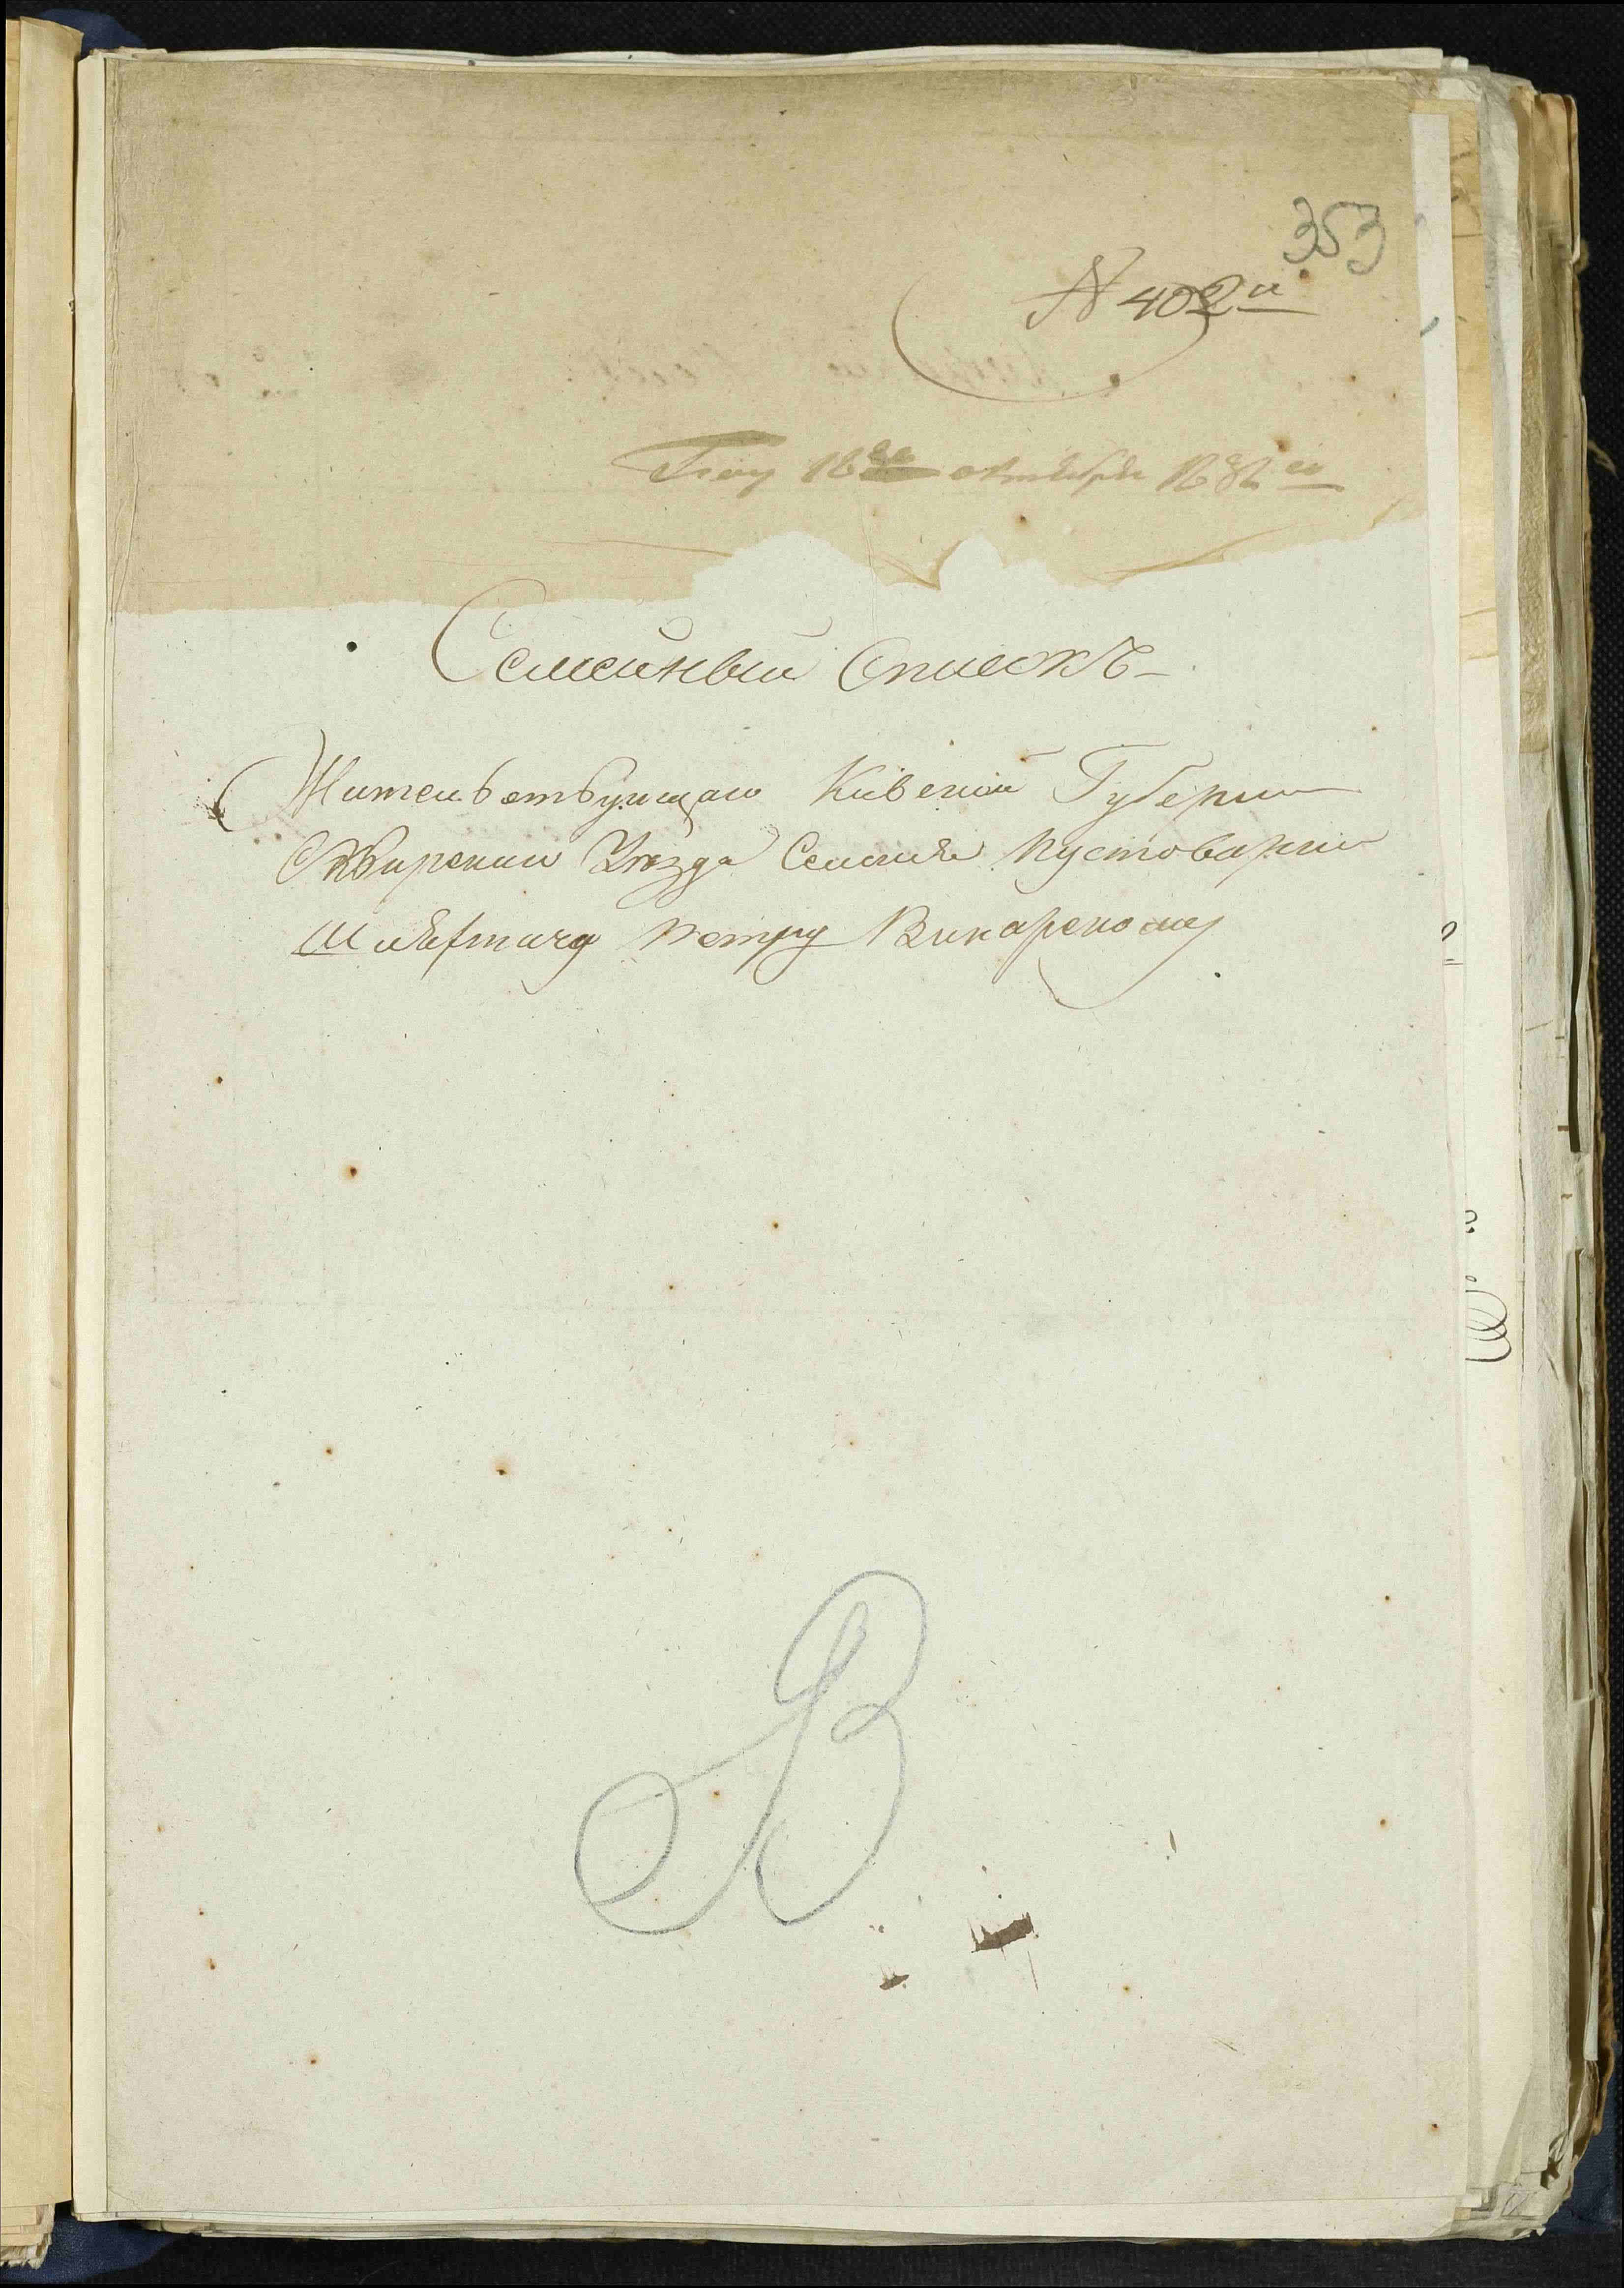 353
N 402й
16го октября
Семейный Списокъ
Жительствующаго Кивской Губерни
Сквирскаго Уезда Селения Пустоварни
Шляхтича Петру Викарскому
В